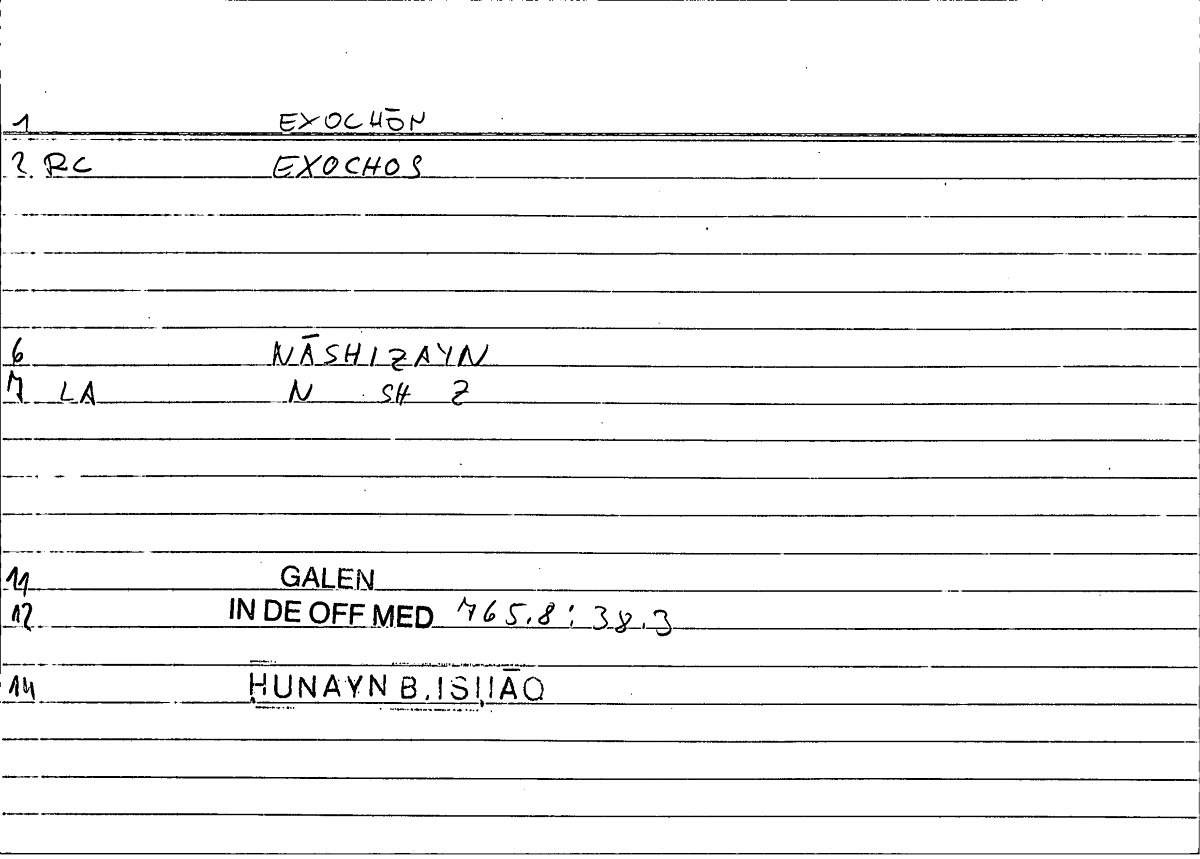 1 EXOCHŌN
2 RC EXOCHOS
6 NĀSHIZAYN
7 LA N SH Z
11 GALEN
12 IN DE OFF MED 765.8 : 38.3
14 ḤUNAYN B. ISḤĀQ